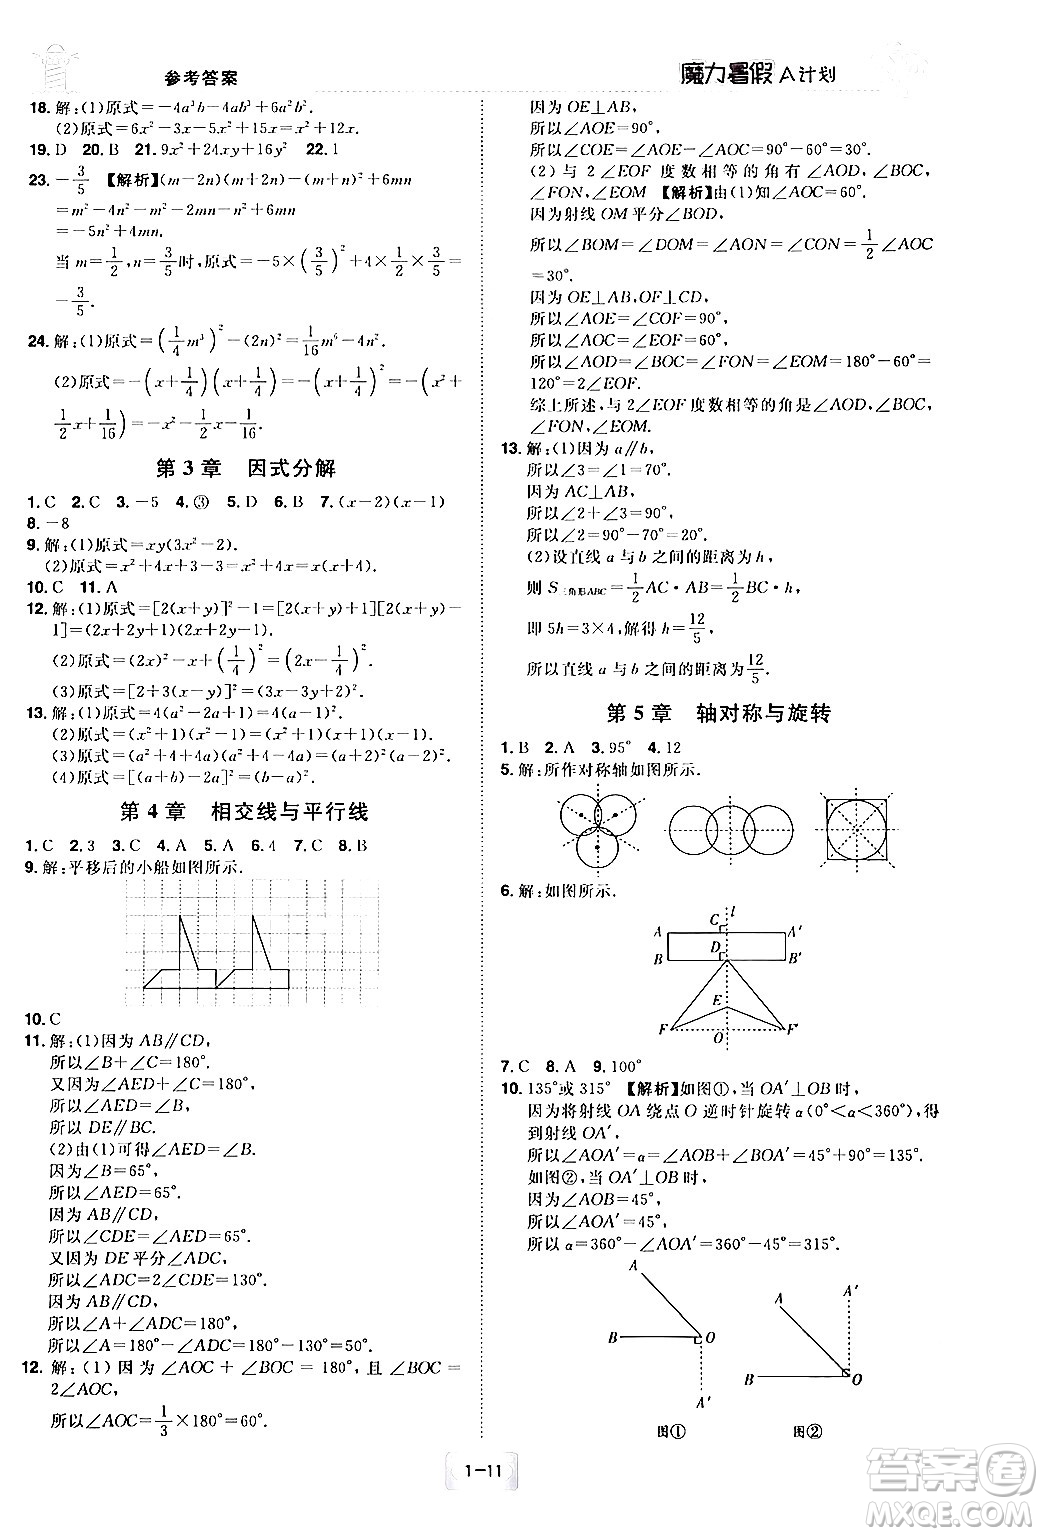 参考答案
魔力暑假 A计划
18. 解:(1)原式=-4a³b-4ab³+8a²b².
(2)原式=6x²-3x-5x²+15x=x²+12x.
19. D 20. B 21. 9x²+24xy+16y² 22. 1
23. -3/5 【解析】(m-2n)(m+2n)-(m-n)²+6mn
=m²-4n²-m²+2mn-n²+6mn
=-5n²
当m=1/2,n=3/5时,原式=-5×(3/5)²+4×1/2×3/5=
-3/5.
24. 解:(1)原式=(1/4m³)²-(2n)²=1/16m⁶-4n².
(2)原式=-(x+1/4)(x+1/4)=-(x+1/4)²=-(x²+
1/2x+1/16)=-x²-1/2x-1/16.
第3章 因式分解
1. C 2. C 3. -5 4. ③ 5. D 6. B 7. (x-2)(x-1)
8. -8
9. 解:(1)原式=xy(3x²-2).
(2)原式=x²+4x+3-3=x²+4x=x(x+4).
10. C 11. A
12. 解:(1)原式=[2(x+y)]²-1=[2(x+y)+1][2(x+y)-
1]=(2x+2y+1)(2x+2y-1).
(2)原式=(2x)²-x+(1/4)²=(2x-1/4)².
(3)原式=[2+3(x-y)]²=(3x-3y+2)².
13. 解:(1)原式=4(a²-2a+1)=4(a-1)².
(2)原式=(x²+1)(x²-1)=(x²+1)(x+1)(x-1).
(3)原式=(a²+4+4a)(a²+4-4a)=(a+2)²(a-2)².
(4)原式=[(a+b)-(a+2)]²=(b-2)².
第4章 相交线与平行线
1. C 2. 3 3. C 4. A 5. A 6. 4 7. C 8. B
9. 解:平移后的小船如图所示.
10. C
11. 解:(1)因为AB∥CD,
所以∠B+∠C=180°.
又因为∠AED+∠C=180°,
所以∠AED=∠B,
所以DE∥BC.
(2)由(1)可得∠AED=∠B.
因为∠B=65°,
所以∠AED=65°.
因为AB∥CD,
所以∠CDE=∠AED=65°.
又因为DE平分∠ADC,
所以∠ADC=2∠CDE=130°.
因为AB∥CD,
所以∠A+∠ADC=180°,
所以∠A=180°-∠ADC=180°-130°=50°.
12. 解:(1)因为∠AOC+∠BOC=180°,且∠BOC=
2∠AOC,
所以∠AOC=1/3×180°=60°.
因为OE⊥AB,
所以∠AOE=90°,
所以∠COE=∠AOE-∠AOC=90°-60°=30°.
(2)与2∠EOF度数相等的角有∠AOD,∠BOC,
∠FON,∠EOM 【解析】由(1)知∠AOC=60°.
因为射线OM平分∠BOD,
所以∠BOM=∠DOM=∠AON=∠CON=1/2∠AOC
=30°.
因为OE⊥AB,OF⊥CD,
所以∠AOE=∠COF=90°,
所以∠AOC=∠EOF=60°,
所以∠AOD=∠BOC=∠FON=∠EOM=180°-60°=
120°=2∠EOF.
综上所述,与2∠EOF度数相等的角是∠AOD,∠BOC,
∠FON,∠EOM.
13. 解:(1)因为a∥b,
所以∠3=∠1=70°.
因为AC⊥AB,
所以∠2+∠3=90°,
所以∠2=90°-70°=20°.
(2)设直线a与b之间的距离为h,
则S三角形ABC=1/2AC·AB=1/2BC·h,
即5h=3×4,解得h=12/5,
所以直线a与b之间的距离为12/5.
第5章 轴对称与旋转
1. B 2. A 3. 95° 4. 12
5. 解:所作对称轴如图所示.
6. 解:如图所示.
C l
A A′
D
B B′
E
F F′
O
7. C 8. A 9. 100°
10. 135°或315° 【解析】如图①,当OA′⊥OB时,
因为将射线OA绕点O逆时针旋转α(0°<α<360°),得
到射线OA′,
所以∠AOA′=α=∠AOB+∠BOA′=45°+90°=135°.
如图②,当OA′⊥OB时,
因为∠AOB=45°,
所以∠AOA′=45°,
所以α=360°-∠AOA′=360°-45°=315°.
A
B O
A′
图①
A A′
B O
图②
1-11
答案圈
MXQE.COM